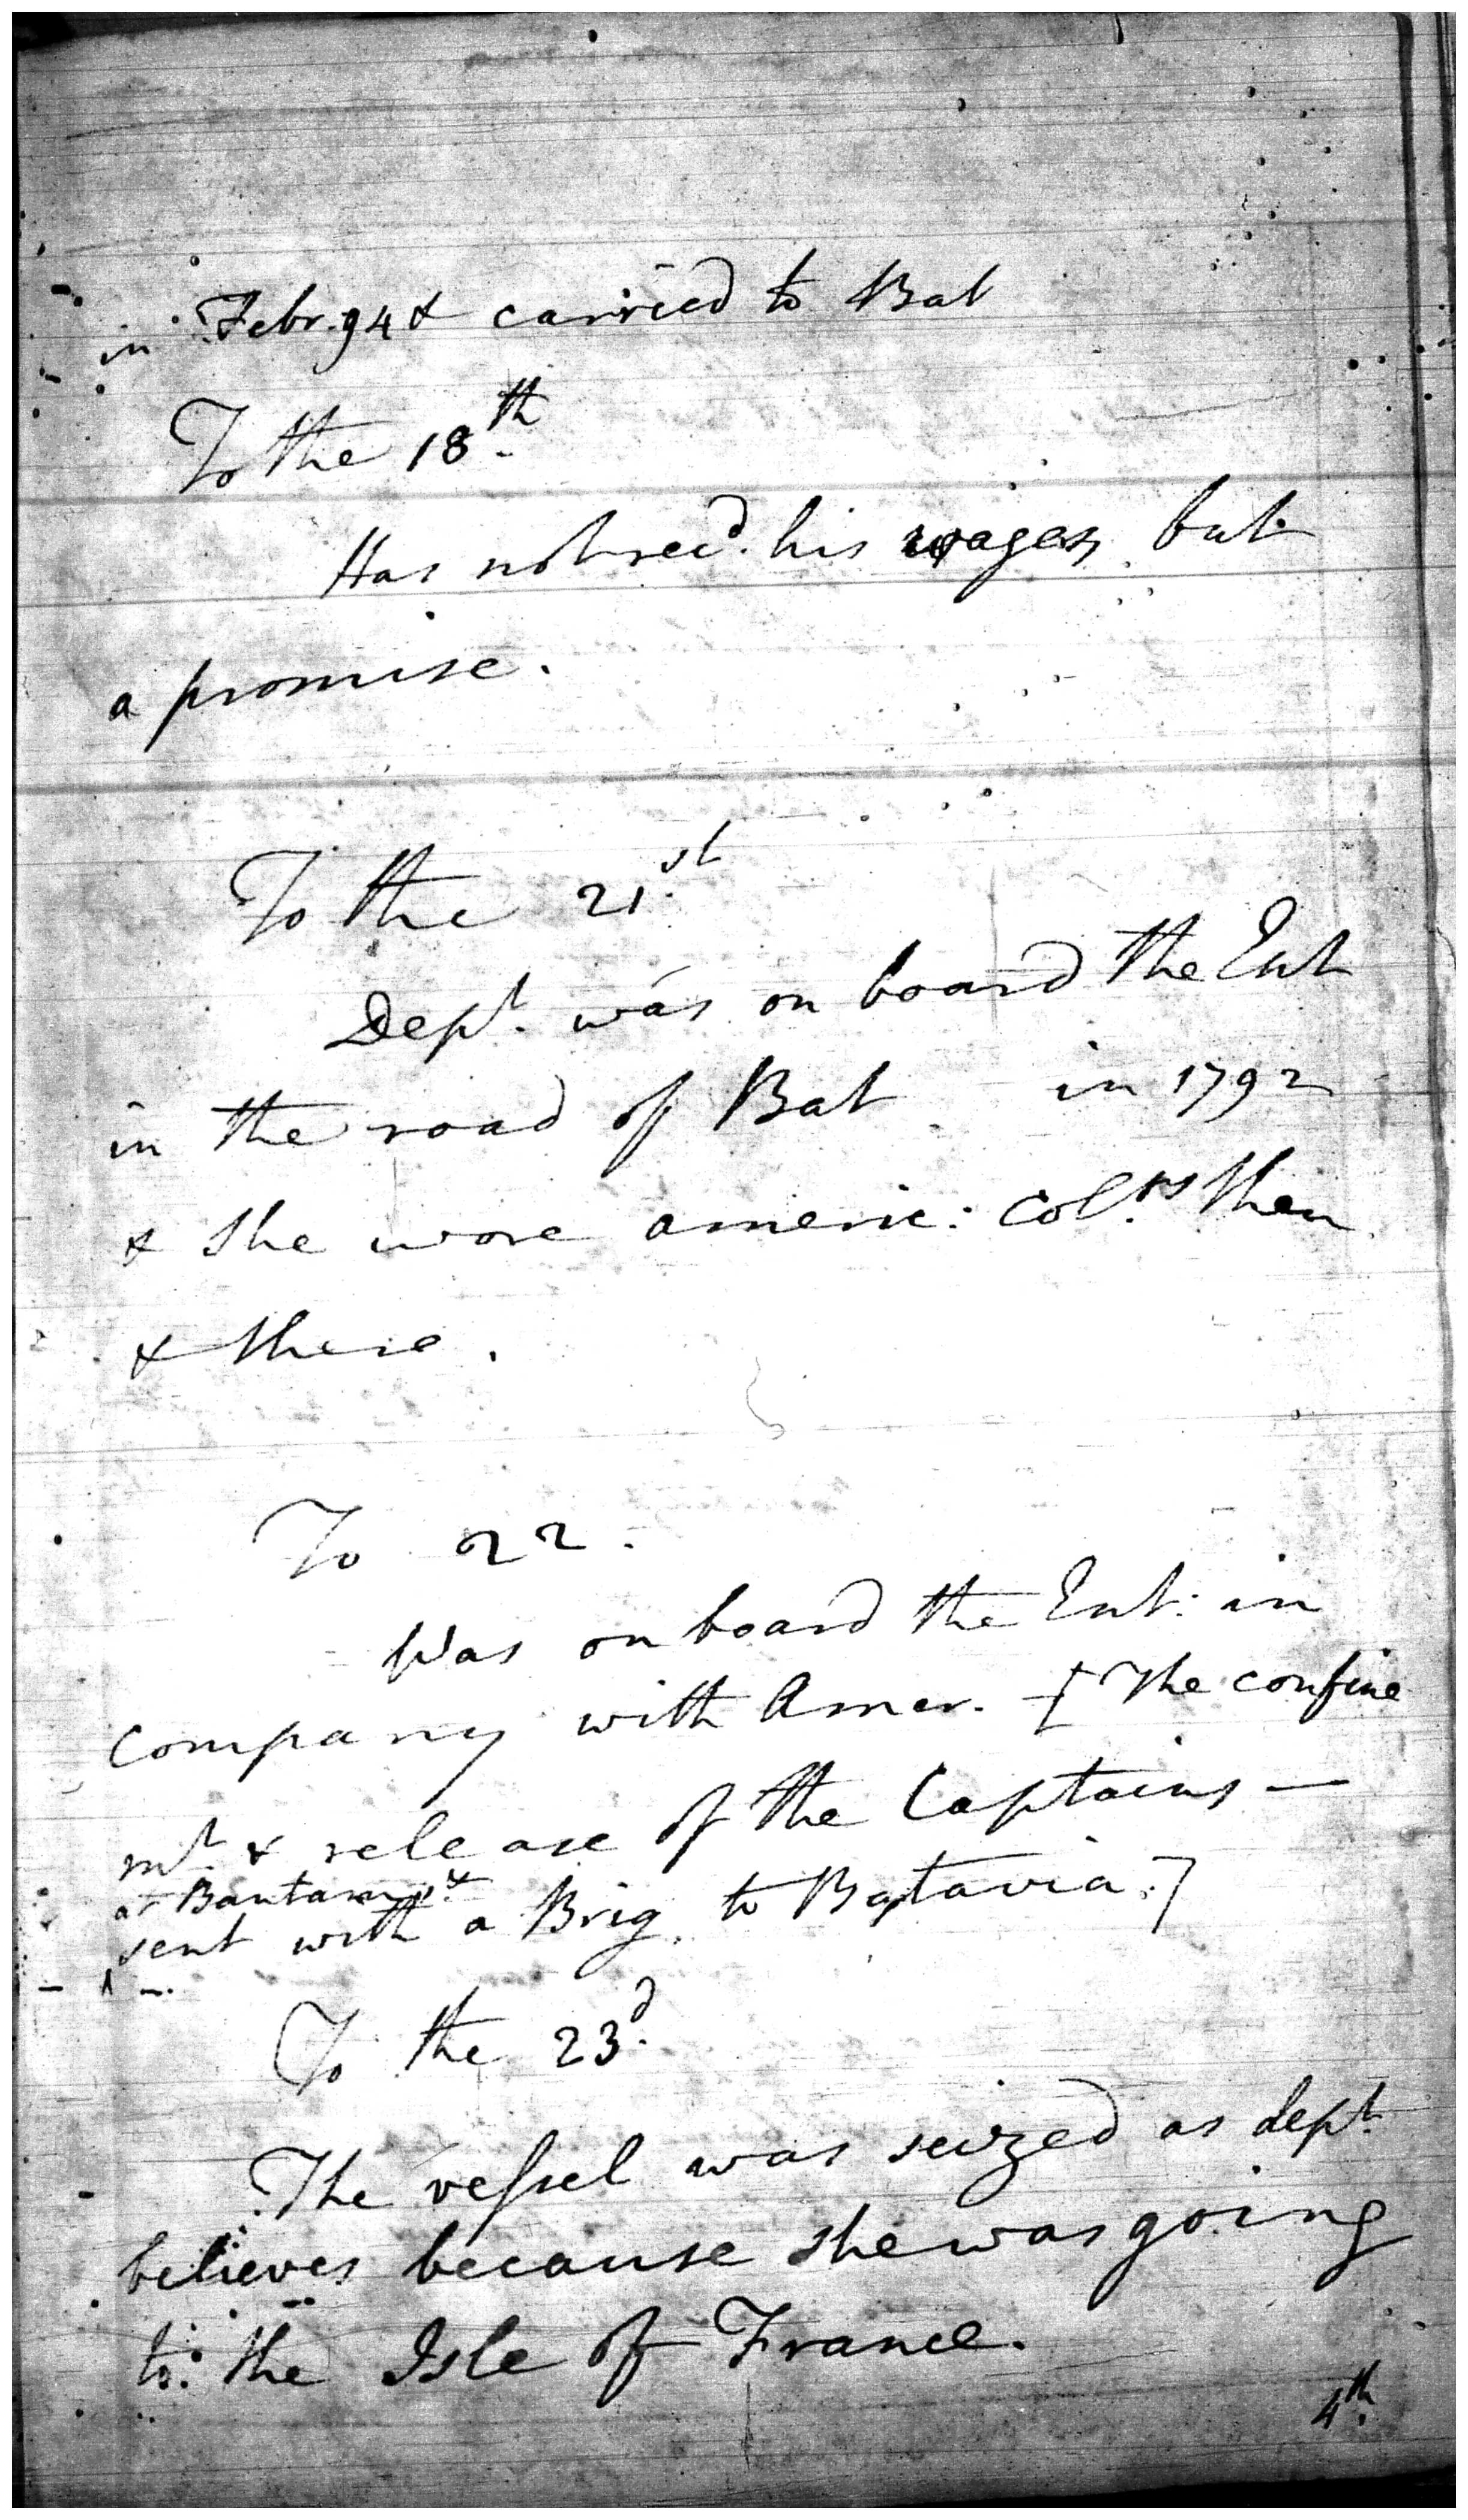 in Febr. 94 & carried to Bat
To the 18th
Has not recd. his wages but
a promise.
To the 21st
Dept. was on board the Ent
in the road of Bat in 1792
& she wore americ: Col.rs then
& there.
To 22.
Was on board the Ent: in
Company with Amer. [The confine
mt. & release of the Captains —
at Bantam &
sent with a Brig to Batavia.]
To the 23d.
The vessel was seized as dept.
believes because she was going
to the Isle of France.
4th.